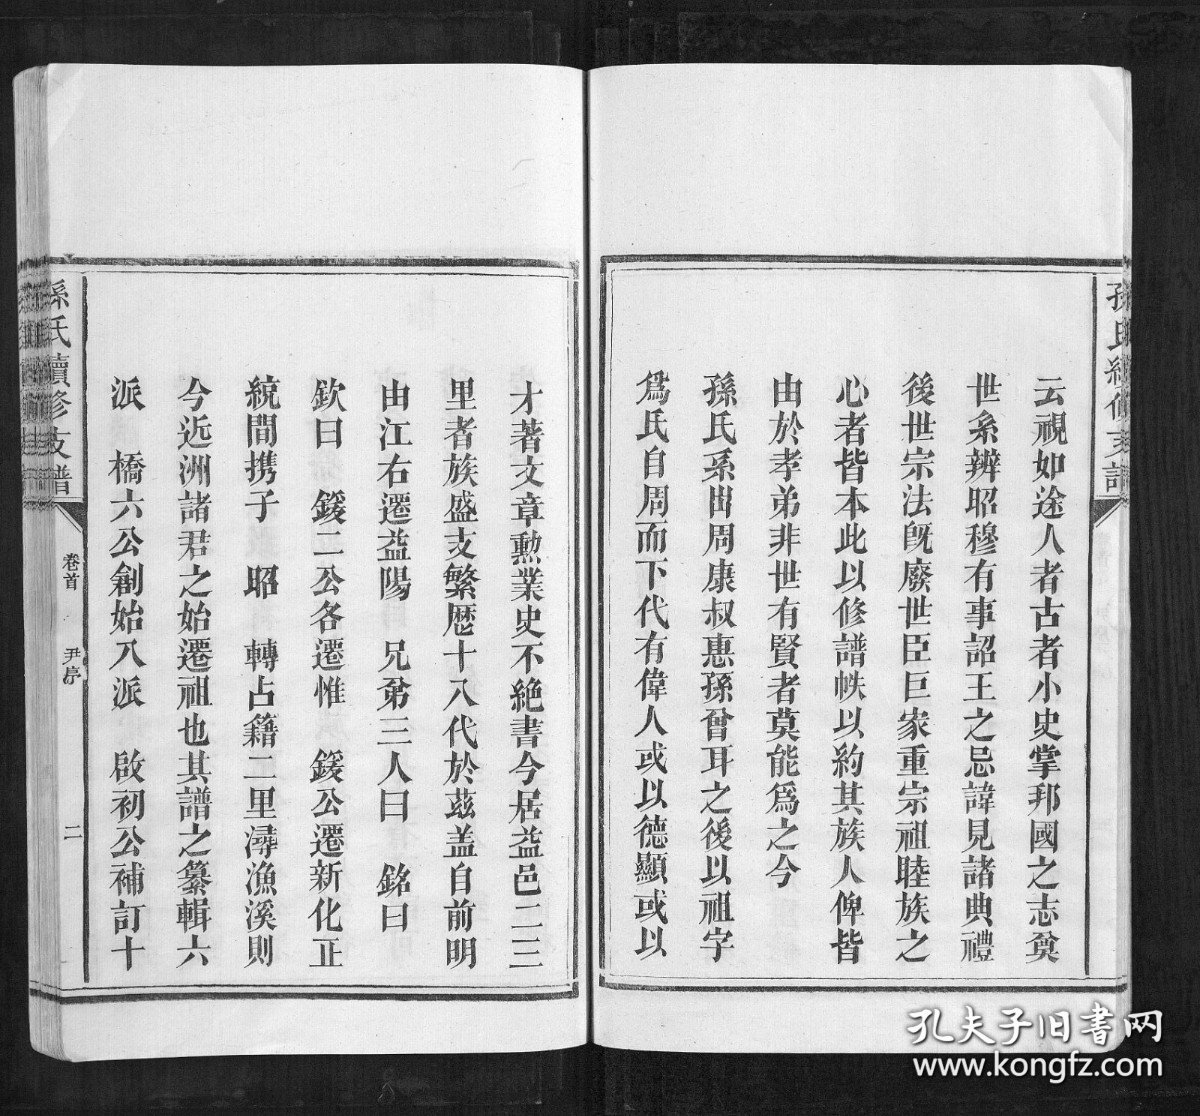 云視如途人者古者小史掌邦國之志奠
世系辨昭穆有事詔王之忌諱見諸典禮
後世宗法旣廢世臣巨家重宗祖睦族之
心者皆本此以修譜帙以約其族人俾皆
由於孝弟非世有賢者莫能爲之今
孫氏系出周康叔惠孫曾耳之後以祖字
爲氏自周而下代有偉人或以德顯或以
才著文章勲業史不絶書今居益邑二三
里者族盛支繁歴十八代於茲盖自前明
由江右遷益陽 兄弟三人曰 銘曰
欽曰 鍰二公各遷惟 鍰公遷新化正
統間携子 昭 轉占籍二里潯漁溪則
今近洲諸君之始遷祖也其譜之纂輯六
派 橋六公創始八派 啟初公補訂十
孫氏續修支譜
卷首 尹序
二
孔夫子旧书网
www.kongfz.com